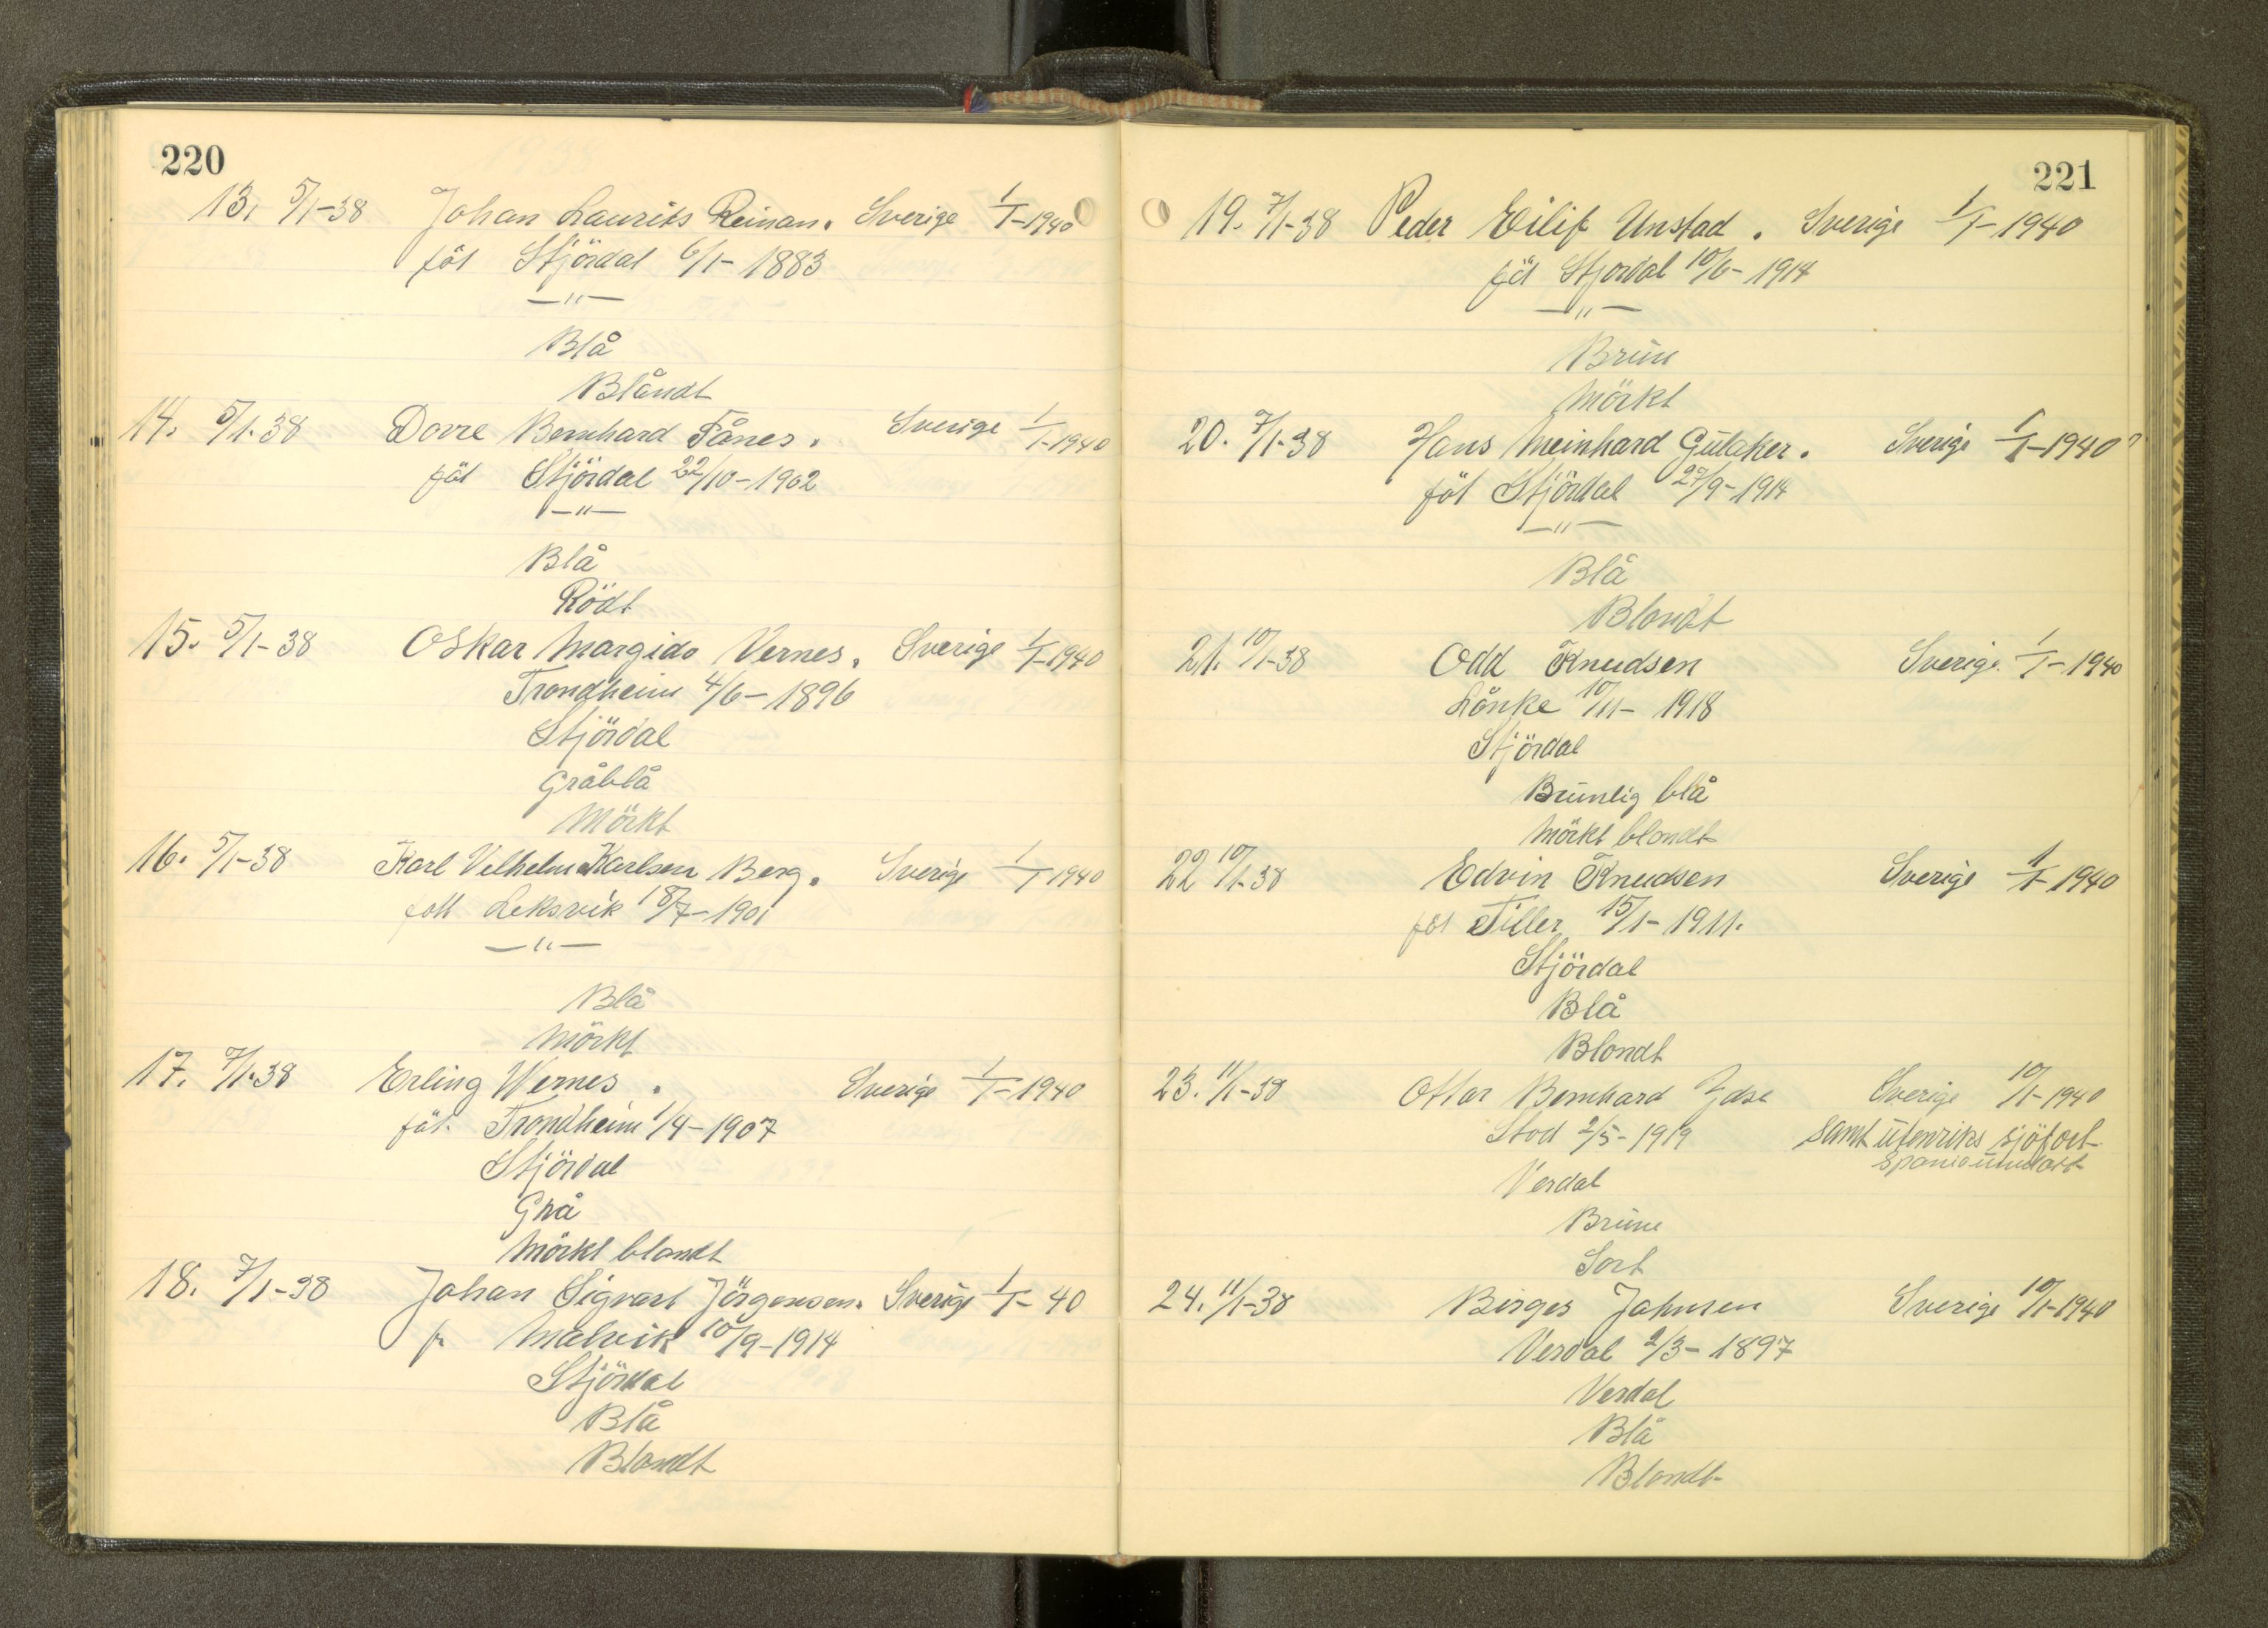 220
13. 5/1-38 Johan Laurits Reinan. Sverige 1/1-1940
föt Stjördal 6/1-1883
—"—
Blå
Blåndt
14. 5/1-38 Dovre Bernhard Fånes. Sverige 1/1-1940
föt Stjördal 22/10-1902
—"—
Blå
Rödt
15. 5/1-38 Oskar Margido Vernes. Sverige 1/1-1940
Trondheim 4/6-1896
Stjördal
Gråblå
Mörkt
16. 5/1-38 Karl Vilhelm Karlsen Berg. Sverige 1/1 1940
Leksvik 18/7-1901
—"—
Blå
Mörkt
17. 7/1-38 Erling Wernes. Sverige 1/1-1940
föt. Trondheim 1/4-1907
Stjördal
Grå
Mörkt blondt
18. 7/1-38 Johan Sigvart Jörgensen. Sverige 1/1-40
f. Malvik 10/9-1914
Stjördal
Blå
Blondt
221
19. 7/1-38 Peder Eilif Unstad. Sverige 1/1-1940
föt Stjordal 10/6-1914
—"—
Brun
Mörkt
20. 7/1-38 Hans Meinhard Gulaker. Sverige 1/1-1940
föt Stjördal 27/9-1914
—"—
Blå
Blondt
21. 10/1-38 Odd Knudsen Sverige. 1/1-1940
Lånke 10/11-1918
Stjördal
Brunlig blå
Mörkt blondt
22 10/1-38 Edvin Knudsen Sverige 1/1-1940
föt Tiller 15/1-1911.
Stjördal
Blå
Blondt
23. 11/1-38 Ottar Bernhard Ydse Sverige 10/1-1940
Stod 2/5-1919 samt utenriks sjöfart
Spania
Verdal
Brune
Sort
24. 11/1-38 Birger Johnsen Sverige 10/1-1940
Verdal 2/3-1897
Verdal
Blå
Blondt